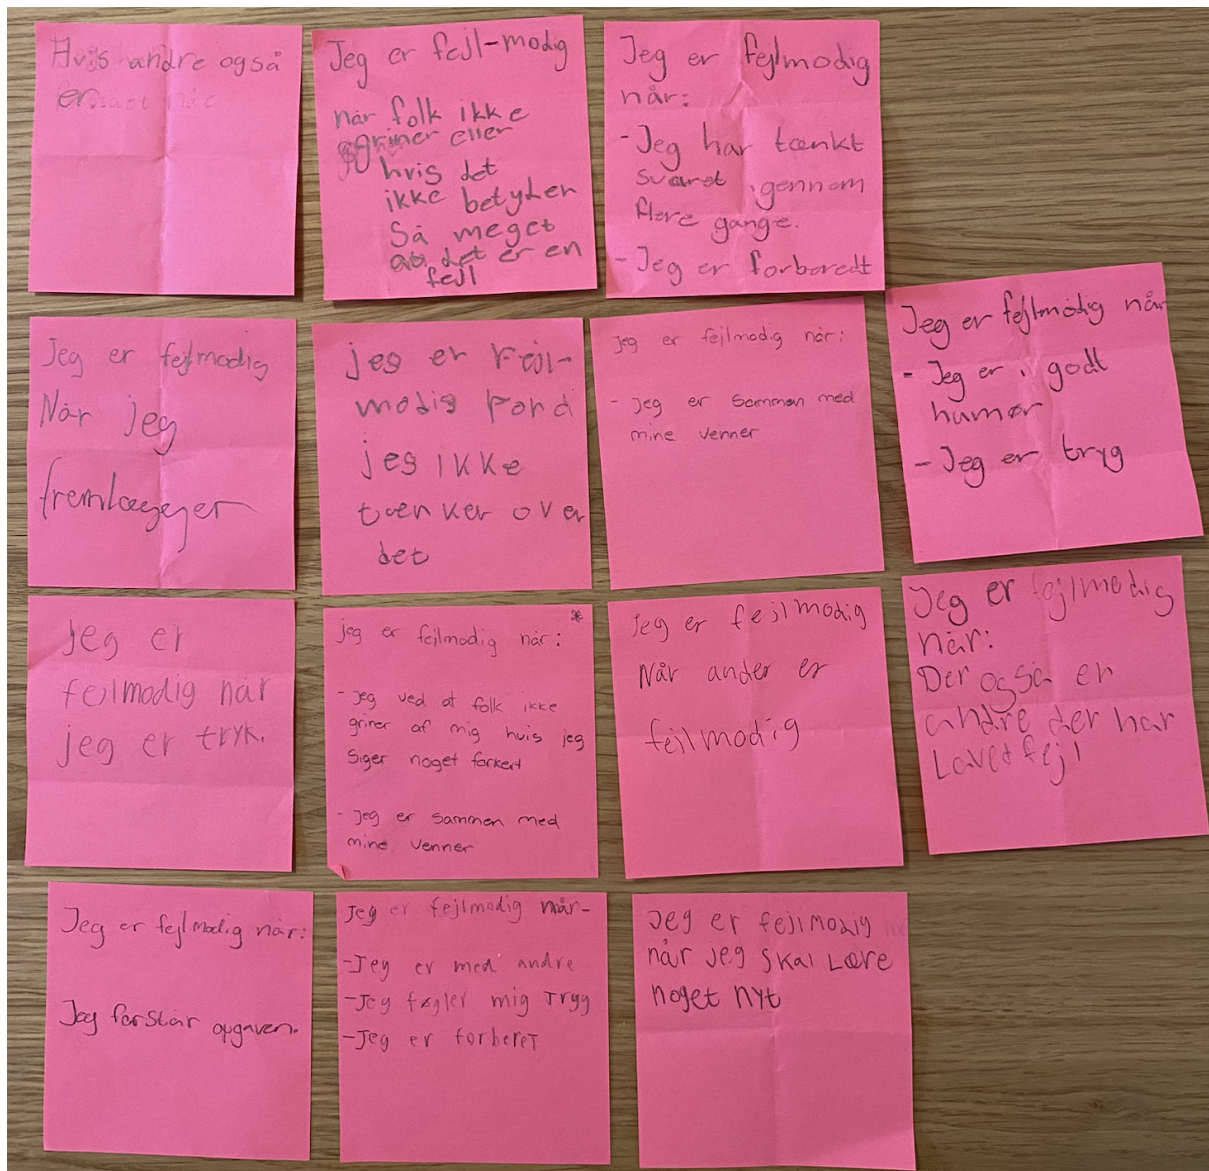 Hvis andre også
er
Jeg er fejl-modig
når folk ikke
griner eller
hvis det
ikke betyder
Så meget
at det er en
fejl
Jeg er fejlmodig
når:
- Jeg har tænkt
svaret igennem
flere gange.
- Jeg er forberedt
Jeg er fejlmodig
Når jeg
fremlægger
jeg er Fejl-
modig Fordi
jeg ikke
tænker over
det
jeg er fejlmodig når:
- jeg er sammen med
mine venner
Jeg er fejlmodig når
- Jeg er i godt
humør
- Jeg er tryg
Jeg er
fejlmodig når
jeg er tryk.
jeg er fejlmodig når:
- jeg ved at folk ikke
griner af mig hvis jeg
siger noget forkert
- jeg er sammen med
mine venner
jeg er fejlmodig
Når ander er
fejlmodig
Jeg er fejlmodig
når:
Der også er
andre der har
Lavet fejl
Jeg er fejlmodig når:
Jeg forstår opgaven.
Jeg er fejlmodig når-
-Jeg er med andre
-Jeg føgler mig Tryg
-Jeg er forberet
Jeg er fejlmodig
når jeg skal Lære
noget nyt